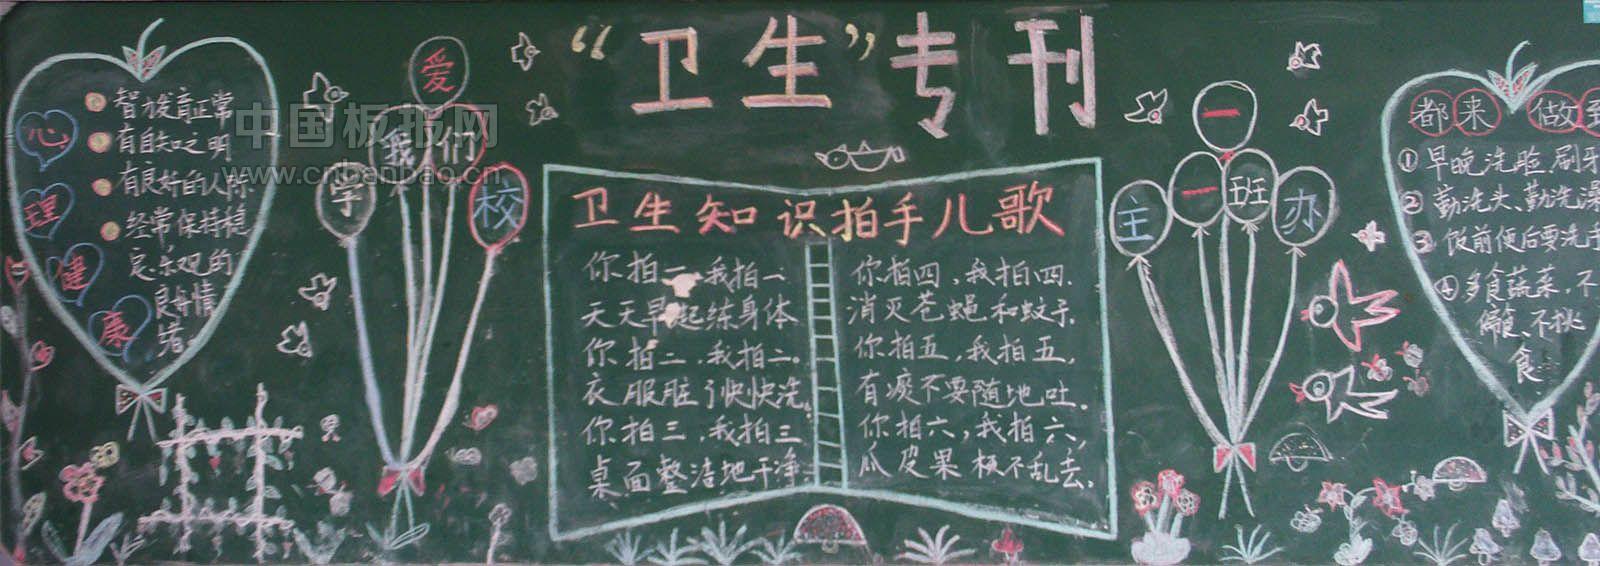 “卫生”专刊
心理健康
智力发育正常
有自知之明
有良好的人际
经常保持稳
定、乐观的
良好情
绪。
中国板报网
www.cnbanbao.cn
爱
我们
学校
卫生知识拍手儿歌
你拍一,我拍一.
天天早起练身体
你拍二,我拍二.
衣服脏了快快洗.
你拍三,我拍三
桌面整洁地干净.
你拍四,我拍四.
消灭苍蝇和蚊子.
你拍五,我拍五,
有痰不要随地吐.
你拍六,我拍六,
瓜皮果 不乱丢.
一
一班
主办
都来 做到
①早晚洗脸,刷牙
②勤洗头、勤洗澡
③饭前便后要洗手
④多食蔬菜,不
偏食、不挑
食